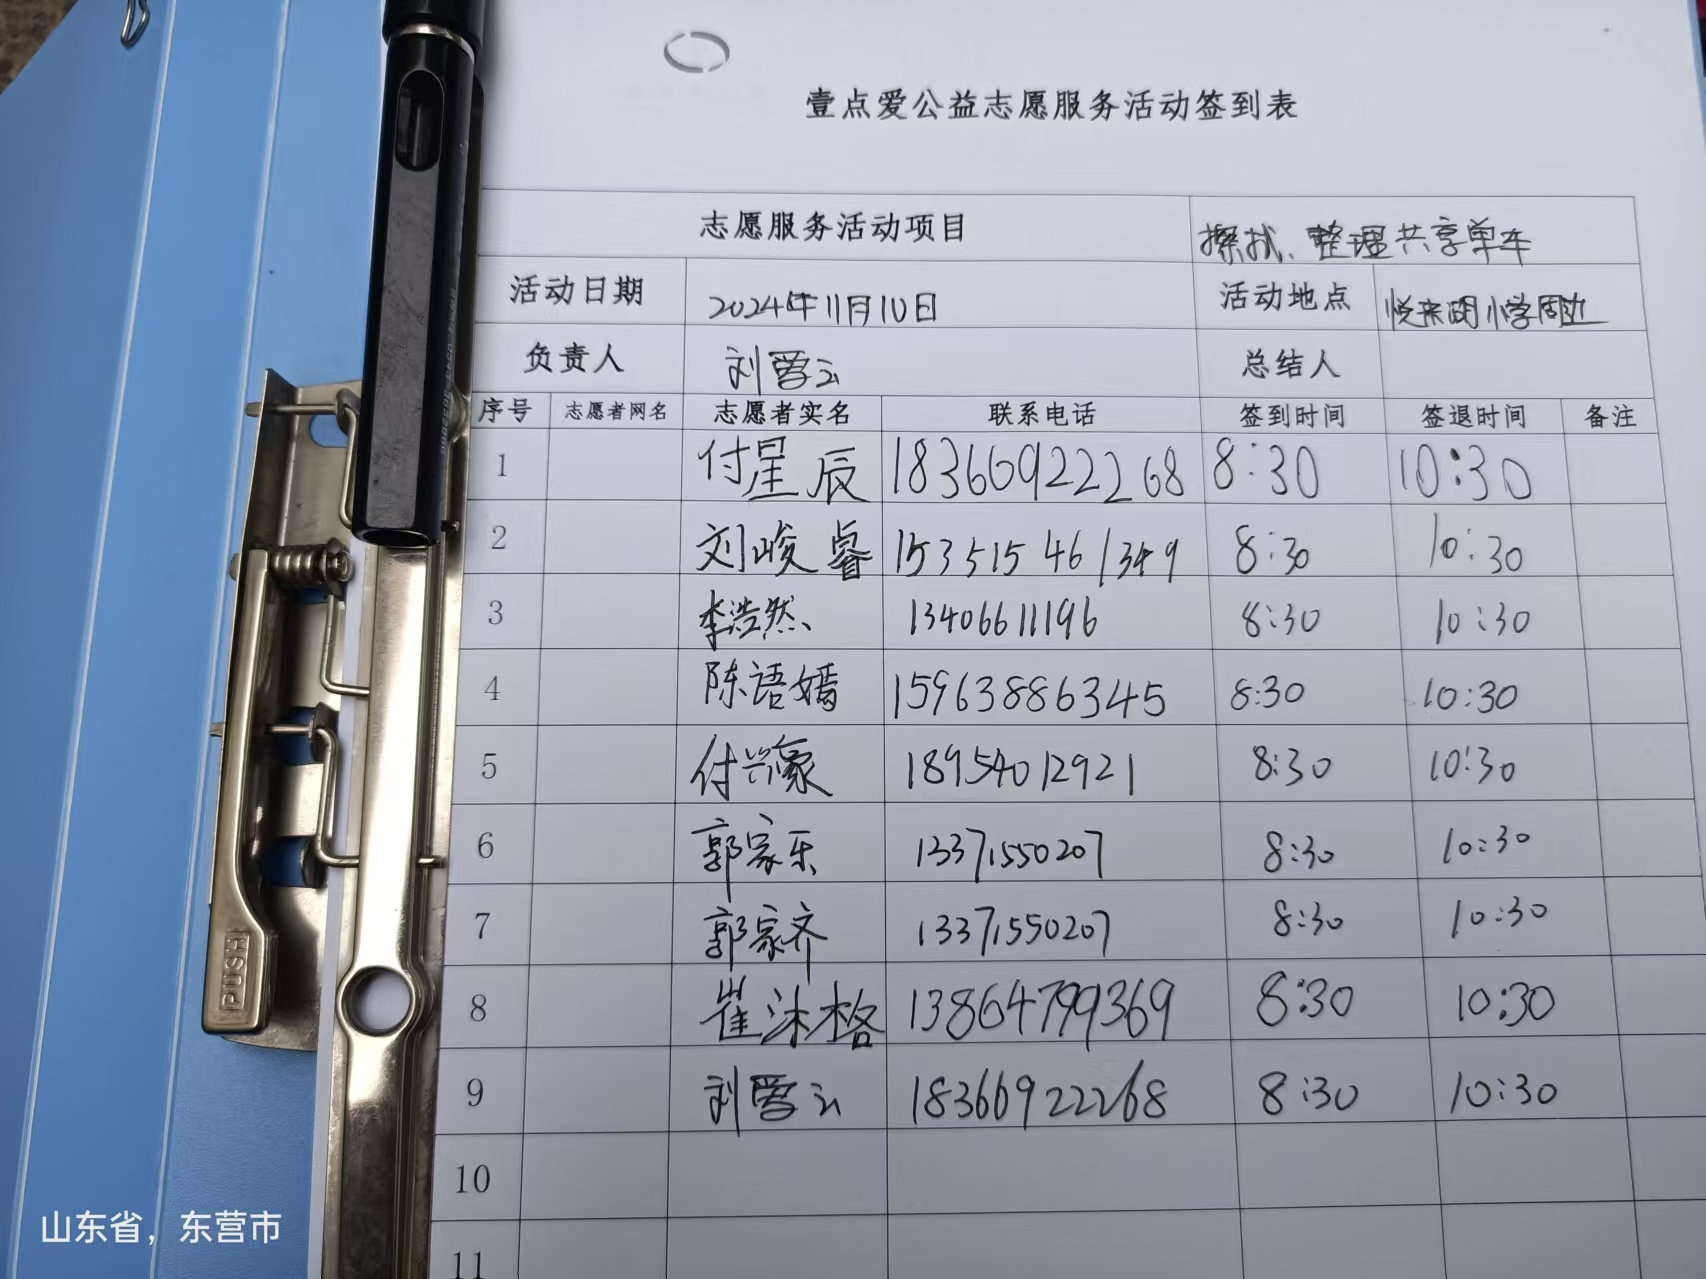 壹点爱公益志愿服务活动签到表
志愿服务活动项目 擦拭、整理共享单车
活动日期 2024年11月10日 活动地点 悦来湖小学周边
负责人 刘雪云 总结人
序号 志愿者网名 志愿者实名 联系电话 签到时间 签退时间 备注
1 付星辰 18366922268 8:30 10:30
2 刘峻睿 8:30 10:30
3 李浩然 13406611196 8:30 10:30
4 陈语嫣 15963886345 8:30 10:30
5 付兴豪 18954012921 8:30 10:30
6 郭家乐 13371550207 8:30 10:30
7 郭家齐 13371550207 8:30 10:30
8 崔沐格 13864799369 8:30 10:30
9 刘雪云 18366922268 8:30 10:30
10
11
PUSH
山东省，东营市